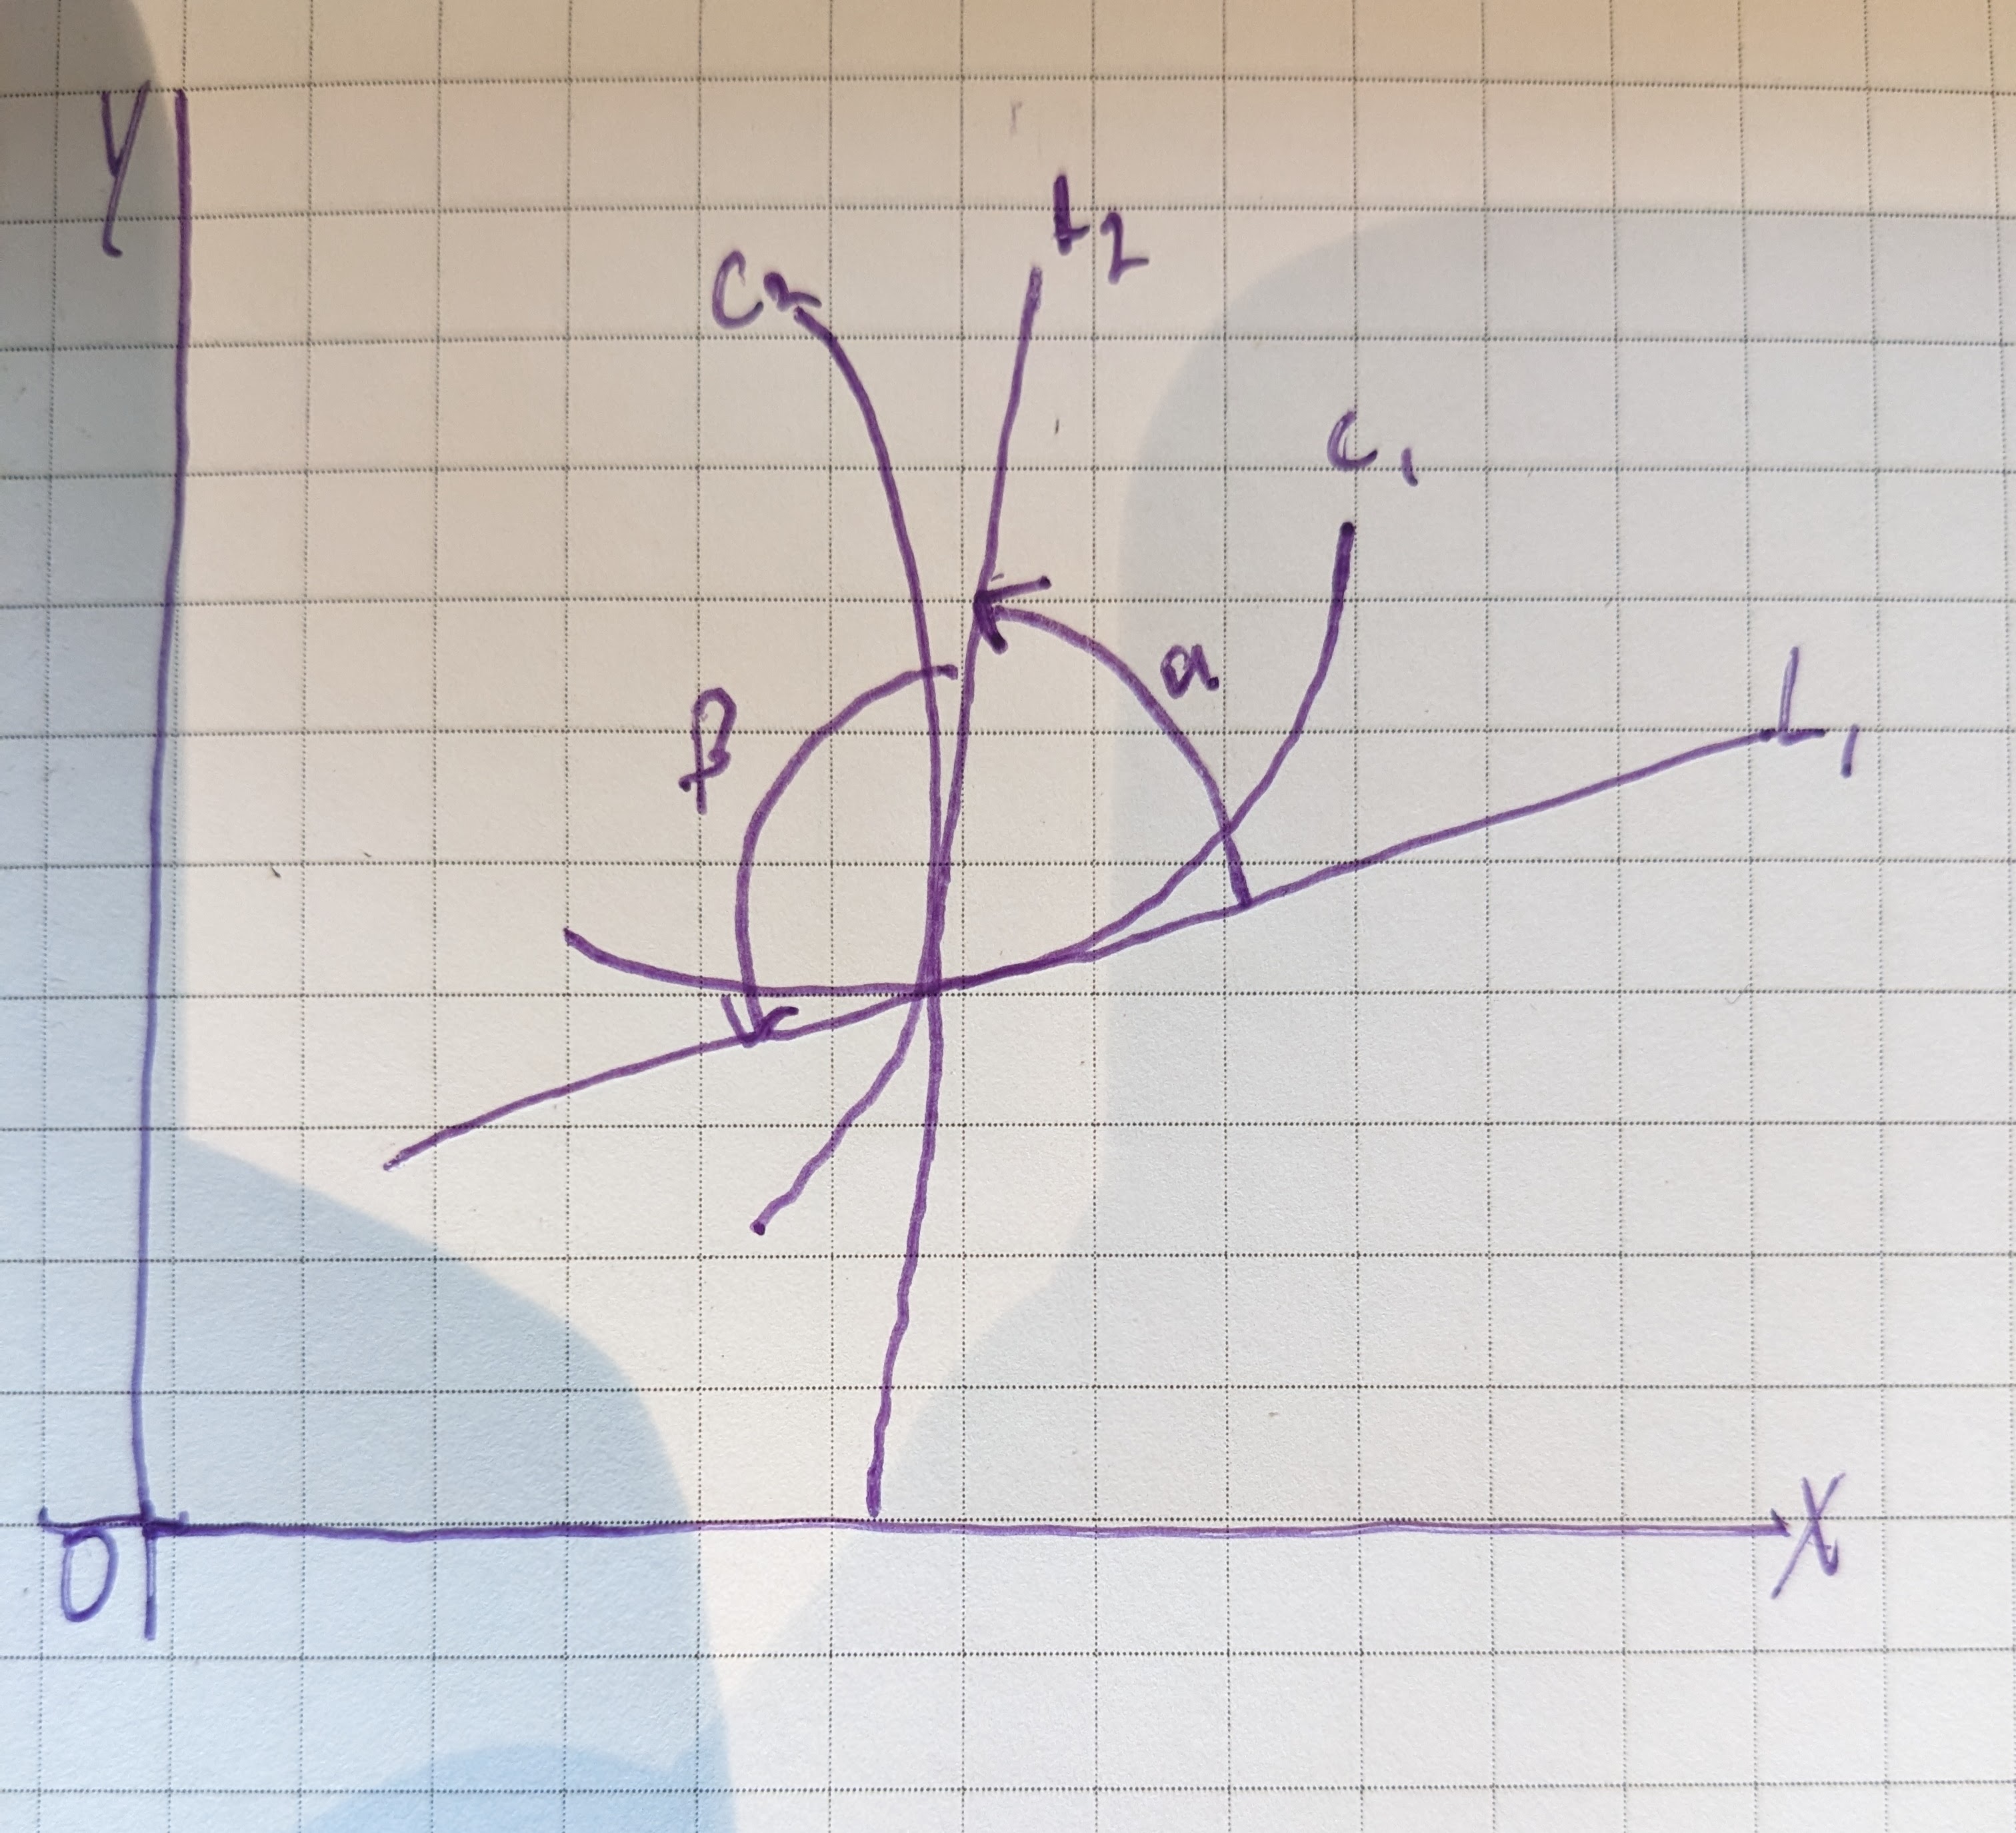 Y
L2
C2
C1
α
β
L1
O
X